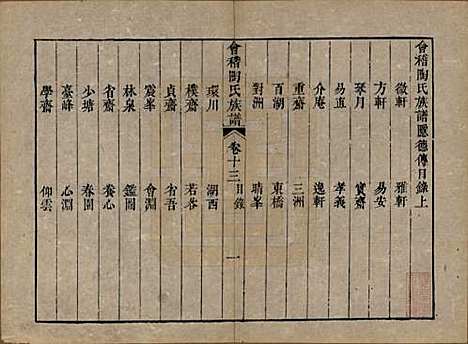 會稽陶氏族譜隱德傳目錄上
徵軒 雅軒
方軒 易安
琴月 寶齋
易直 孝義
介庵 逸軒
重齋 三洲
百湖 東橋
對洲 晴峯
會稽陶氏族譜 卷十三 目錄 一
環川 湖西
樸齋 若谷
貞齋 省吾
震峯 會淵
林泉 鑑圖
省齋 養心
少塘 春園
臺峰 心淵
學齋 仰雲